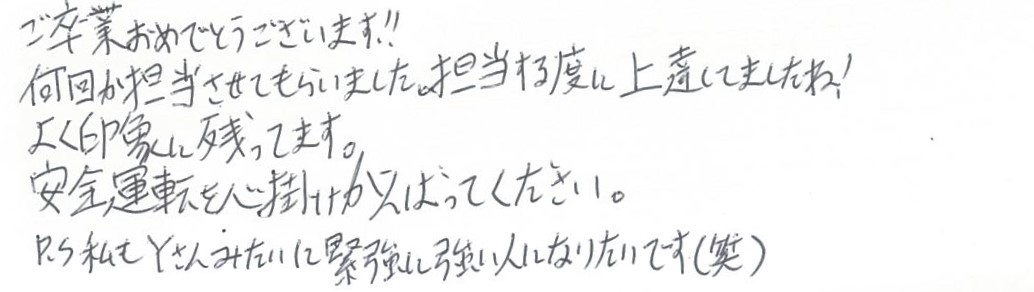 ご卒業おめでとうございます!!
何回か担当させてもらいました。担当する度に上達してましたね!
よく印象に残ってます。
安全運転を心掛けがんばってください。
P.S 私もYさんみたいに緊強に強い人になりたいです(笑)